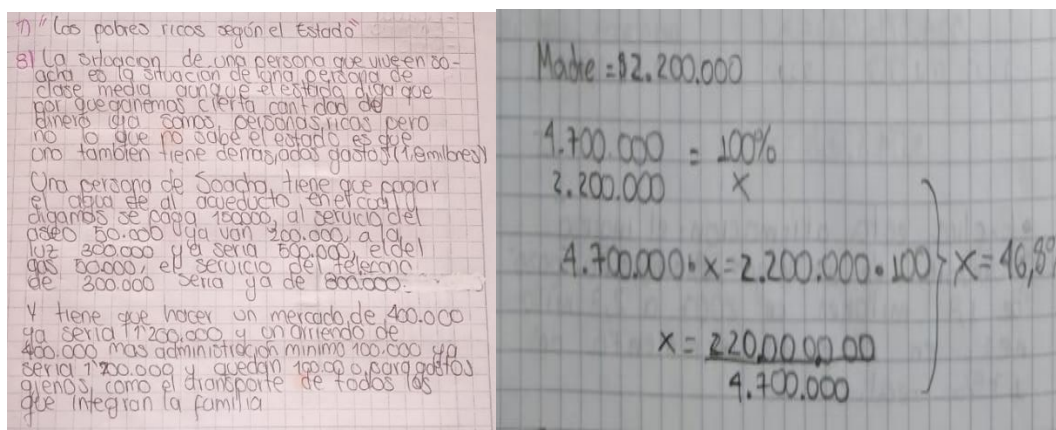 7) "Los pobres ricos según el Estado"
8) La situacion de una persona que vive en so-
acha es la situacion de una persona de
clase media aunque el estado diga que
por que ganemos cierta cantidad de
dinero ya somos personas ricas pero
no lo que no sabe el estado es que
uno tambien tiene demasiados gastos
Una persona de Soacha, tiene que pagar
el agua de al acueducto en el cual
digamos se paga 150000, al servicio del
aseo 50.000 ya van 200.000, a la
luz 300.000 ya seria 500.000, el del
gas 50.000, el servicio del
de 300.000 seria ya de 800.000.
Y tiene que hacer un mercado, de 400.000
ya seria 1'200.000 y un arriendo de
400.000 mas administracion minimo 100.000 ya
seria 1'700.000 y quedan para gastos
como el transporte de todos los
que integran la familia
Madre = $2.200.000
4.700.000 = 100%
2.200.000 x
4.700.000 • x = 2.200.000 • 100 } x = 46,8%
x = 220.000.000
4.700.000